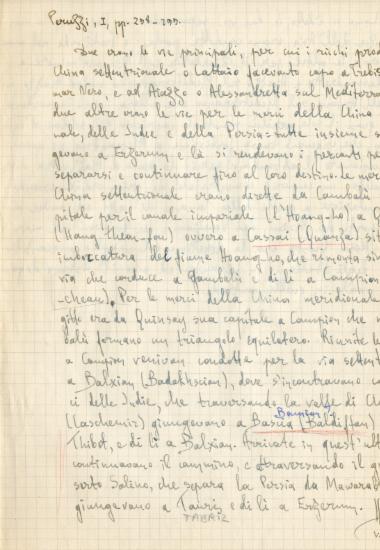 Peruzzi, I, pp. 298-299.
Due erano le vie principali, per cui i ricchi prod
China settentrionale o Cattaio facevano capo a Trebis
mar Nero, e ad Aiazzo o Alessandretta sul Mediterra
due altre erano le vie per le merci della China
nale, delle Indie e della Persia: tutte insieme s
gevano a Erzerum e là si rendevano i mercanti pe
separarsi e continuare fino al loro destino. Le mer
China settentrionale erano dirette da Cambalù
pitale per il canale imperiale (l'Hoang-ho) a
("Hang thean-fou) ovvero a Cassai (Quinza) sit
imboccatura del fiume Hoang-ho, che rimonta sin
via che conduce a Gambalù e di lì a Campion
-cheau). Per le merci della China meridionale
gitto era da Quinsay sua capitale a Campion che
balù formano un triangolo equilatero. Riunite le
a Campion venivan condotte per la via settent
a Balxian (Badakhscian), dove s'incontravano co
ci delle Indie, che traversando la valle di
(Caschemir) giungevano a Bascia (Baldiffan)
Thibet, e di lì a Balxian. Arrivate in quest'ult
continuavano il cammino, e attraversando il g
serto Salino, che separa la Persia da Mawara
giungevano a Tauris e di lì a Erzerum.
TABRIZ